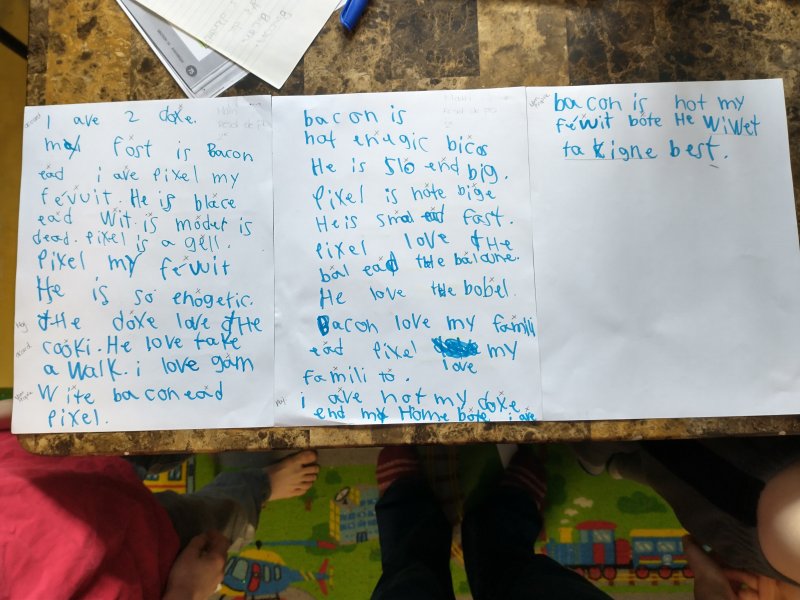 I ave 2 doxe.
my fost is Bacon
ead i ave pixel my
févuit. He is blace
ead wit. is modet is
dead. pixel is a gell.
pixel my féwit
He is so enogetic.
tHe doxe love tHe
cooki. He love take
a walk. i love gam
Wite bacon ead
pixel.
bacon is
not enegic bicos
He is slo end big.
pixel is note bige
He is smal ead fast.
pixel love tHe
bal ead the balone.
He love the bobel.
Bacon love my famili
ead pixel love my
famili to.
i ave not my doxe
end my Home bote i ave
bacon is not my
féwit bote He Wiwet
ta kigne best.